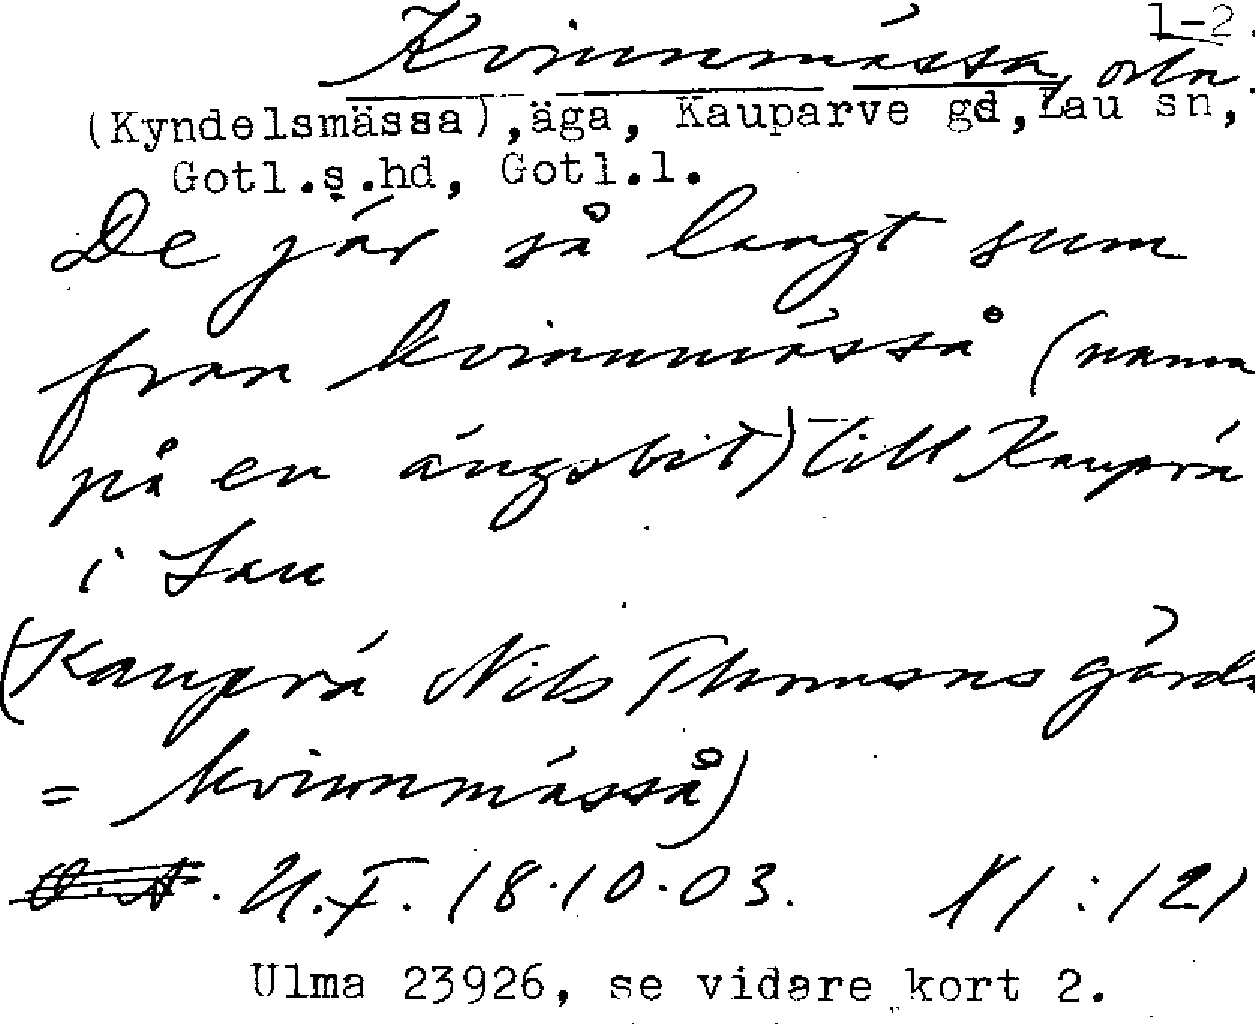 1-2.
Kvinnmässa, orta
(Kyndelsmässa), äga, Kauparve gd, Lau sn,
Gotl.s.hd, Gotl.l.
De jár så langt sum
fran kvinnmásså (namn
på en ángsbit) till Kauprá
i Lau
(Kauprá Nils Thomsons gård
= kvinnmásså)
U.F. 18.10.03. K1:121
Ulma 23926, se vidare kort 2.